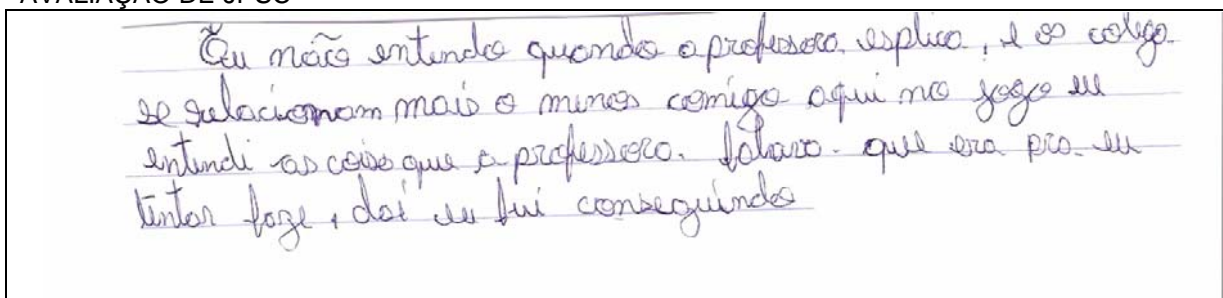 Eu não entendo quando a professora esplica, e os colega
se relacionam mais o menos comigo aqui no jogo eu
entendi as coisa que a professora. falava. que era pra eu
tentar faze, daí eu fui conseguindo